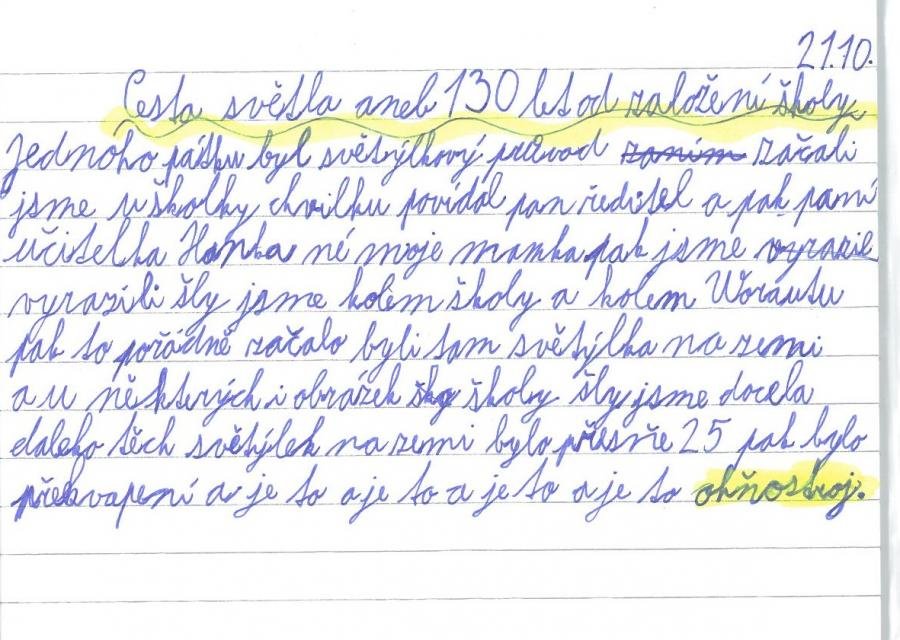 21.10.
Cesta světla aneb 130 let od založení školy
Jednoho pátku byl světýlkový průvod zaním začali
jsme u školky chvilku povídal pan ředitel a pak paní
učitelka Hanka né moje mamka pak jsme vyrazile
vyrazili šly jsme kolem školy a kolem Worautu
pak to pořádně začalo byli tam světýlka na zemi
a u některých i obrázek ško školy šly jsme docela
daleko těch světýlek na zemi bylo přesně 25 pak bylo
překvapení a je to a je to a je to a je to ohňostroj.